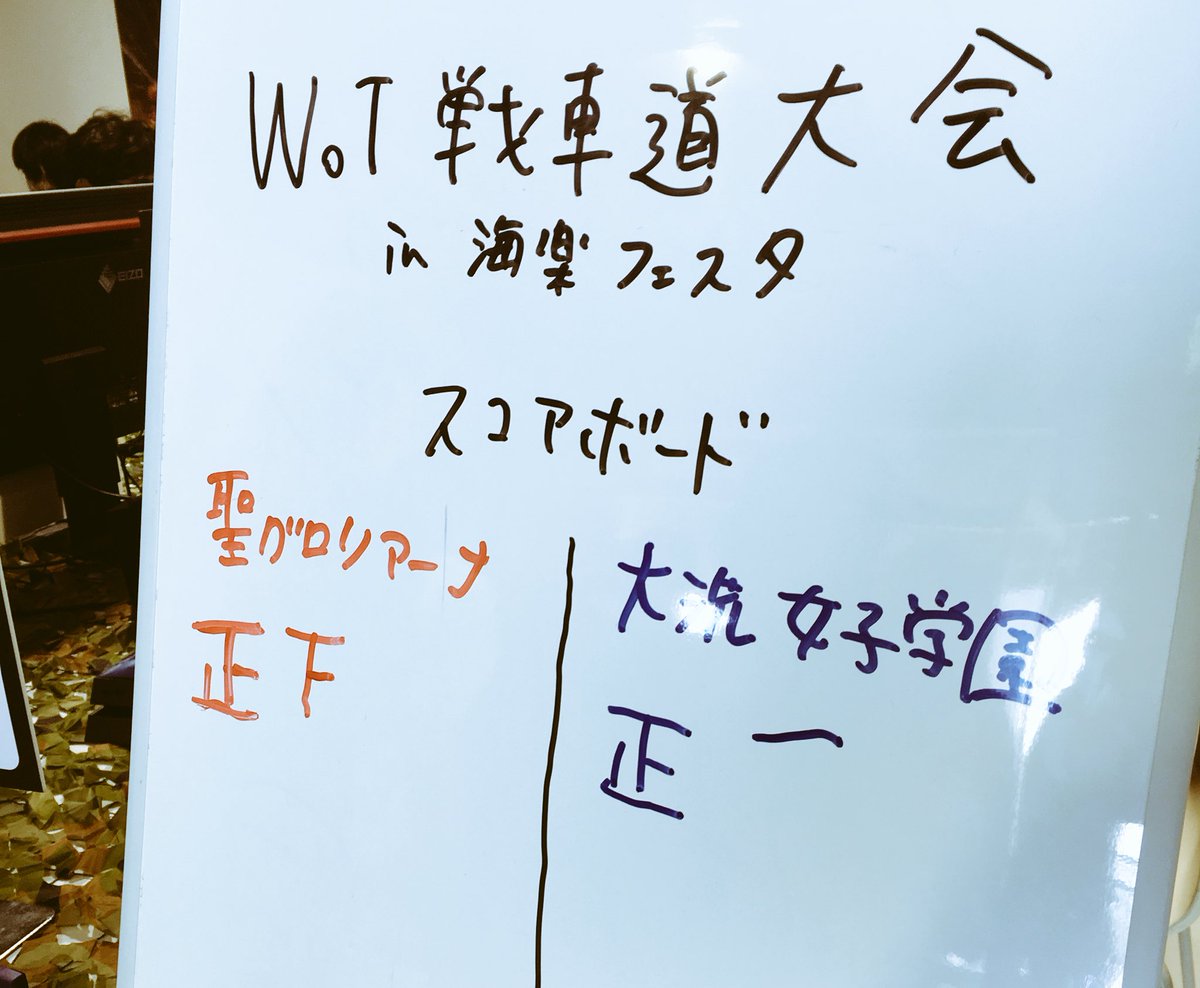 WoT 戦車道大会
in 海楽フェスタ
スコアボード
聖グロリアーナ
正下
大洗女子学園
正一
EIZO